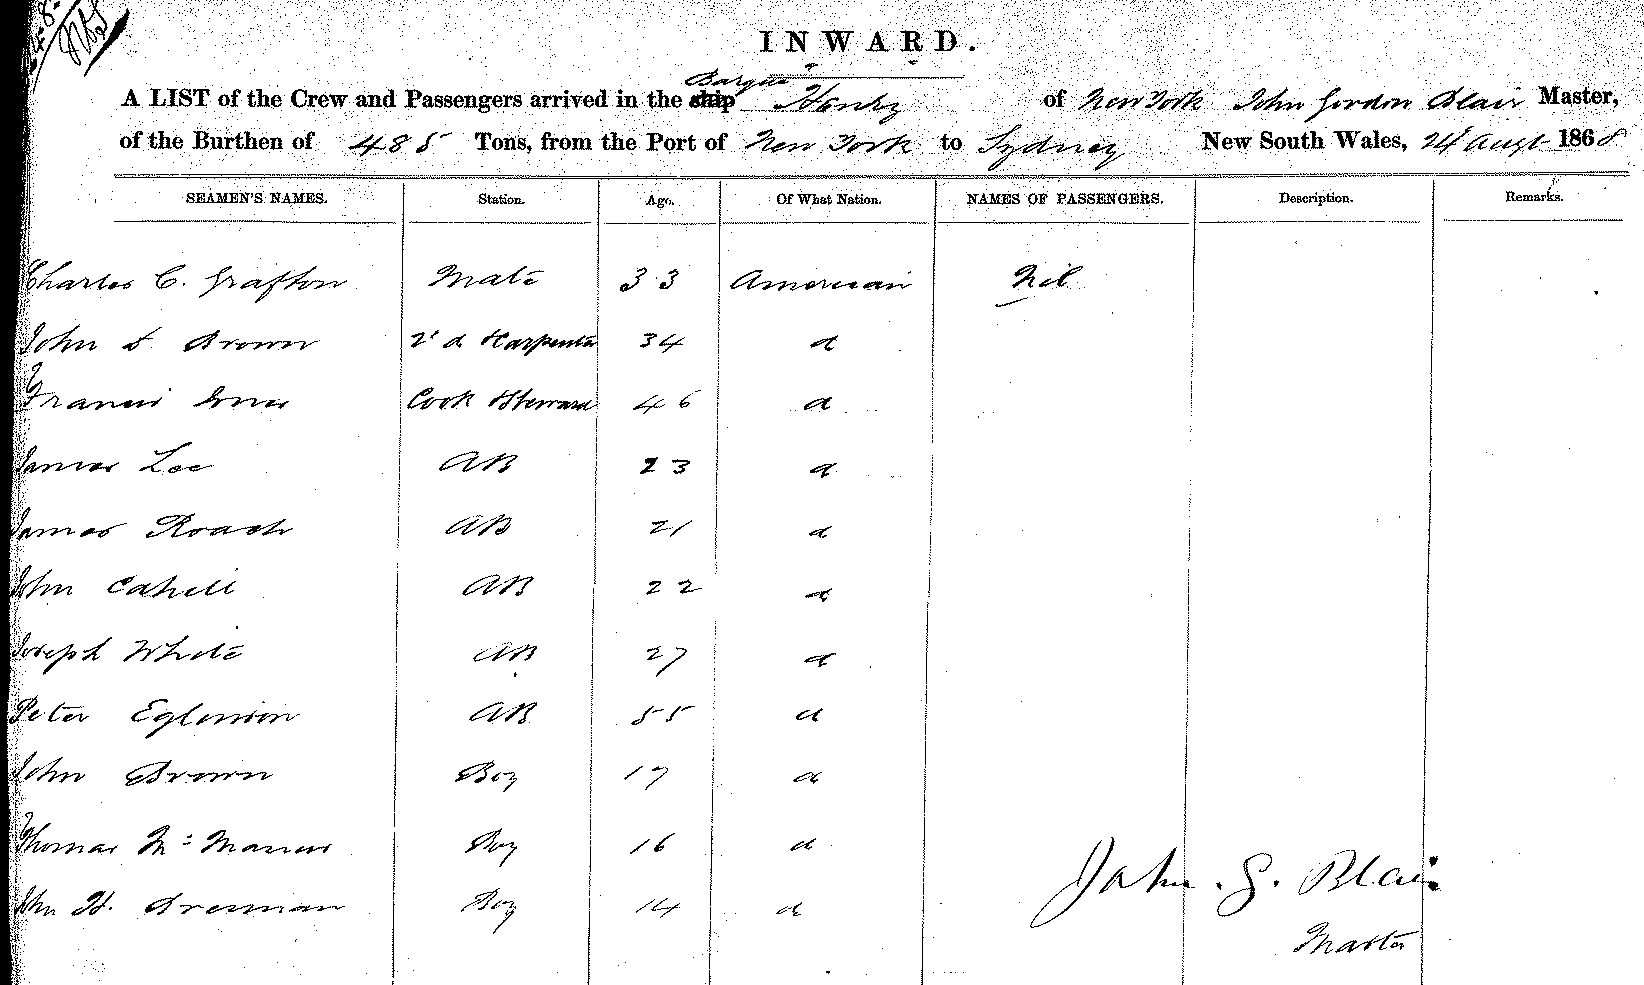 INWARD.
Barque
A LIST of the Crew and Passengers arrived in the ship Henry of New York John Gordon Blair Master,
of the Burthen of 485 Tons, from the Port of New York to Sydney New South Wales, 24 Augt 1868
SEAMEN'S NAMES. Station. Age. Of What Nation. NAMES OF PASSENGERS. Description. Remarks.
Charles C. Grafton Mate 33 American Nil
John S. Brown 2d & Carpenter 34 d
Francis 46 Cook & Steward d
James Lee AB 23 d
James Roach AB 21 d
John Cahill AB 22 d
Joseph White AB 27 d
Peter AB 55 d
John Brown Boy 17 d
Thomas McManus Boy 16 d
John H. Boy 14 d
John . G. Blair
Master